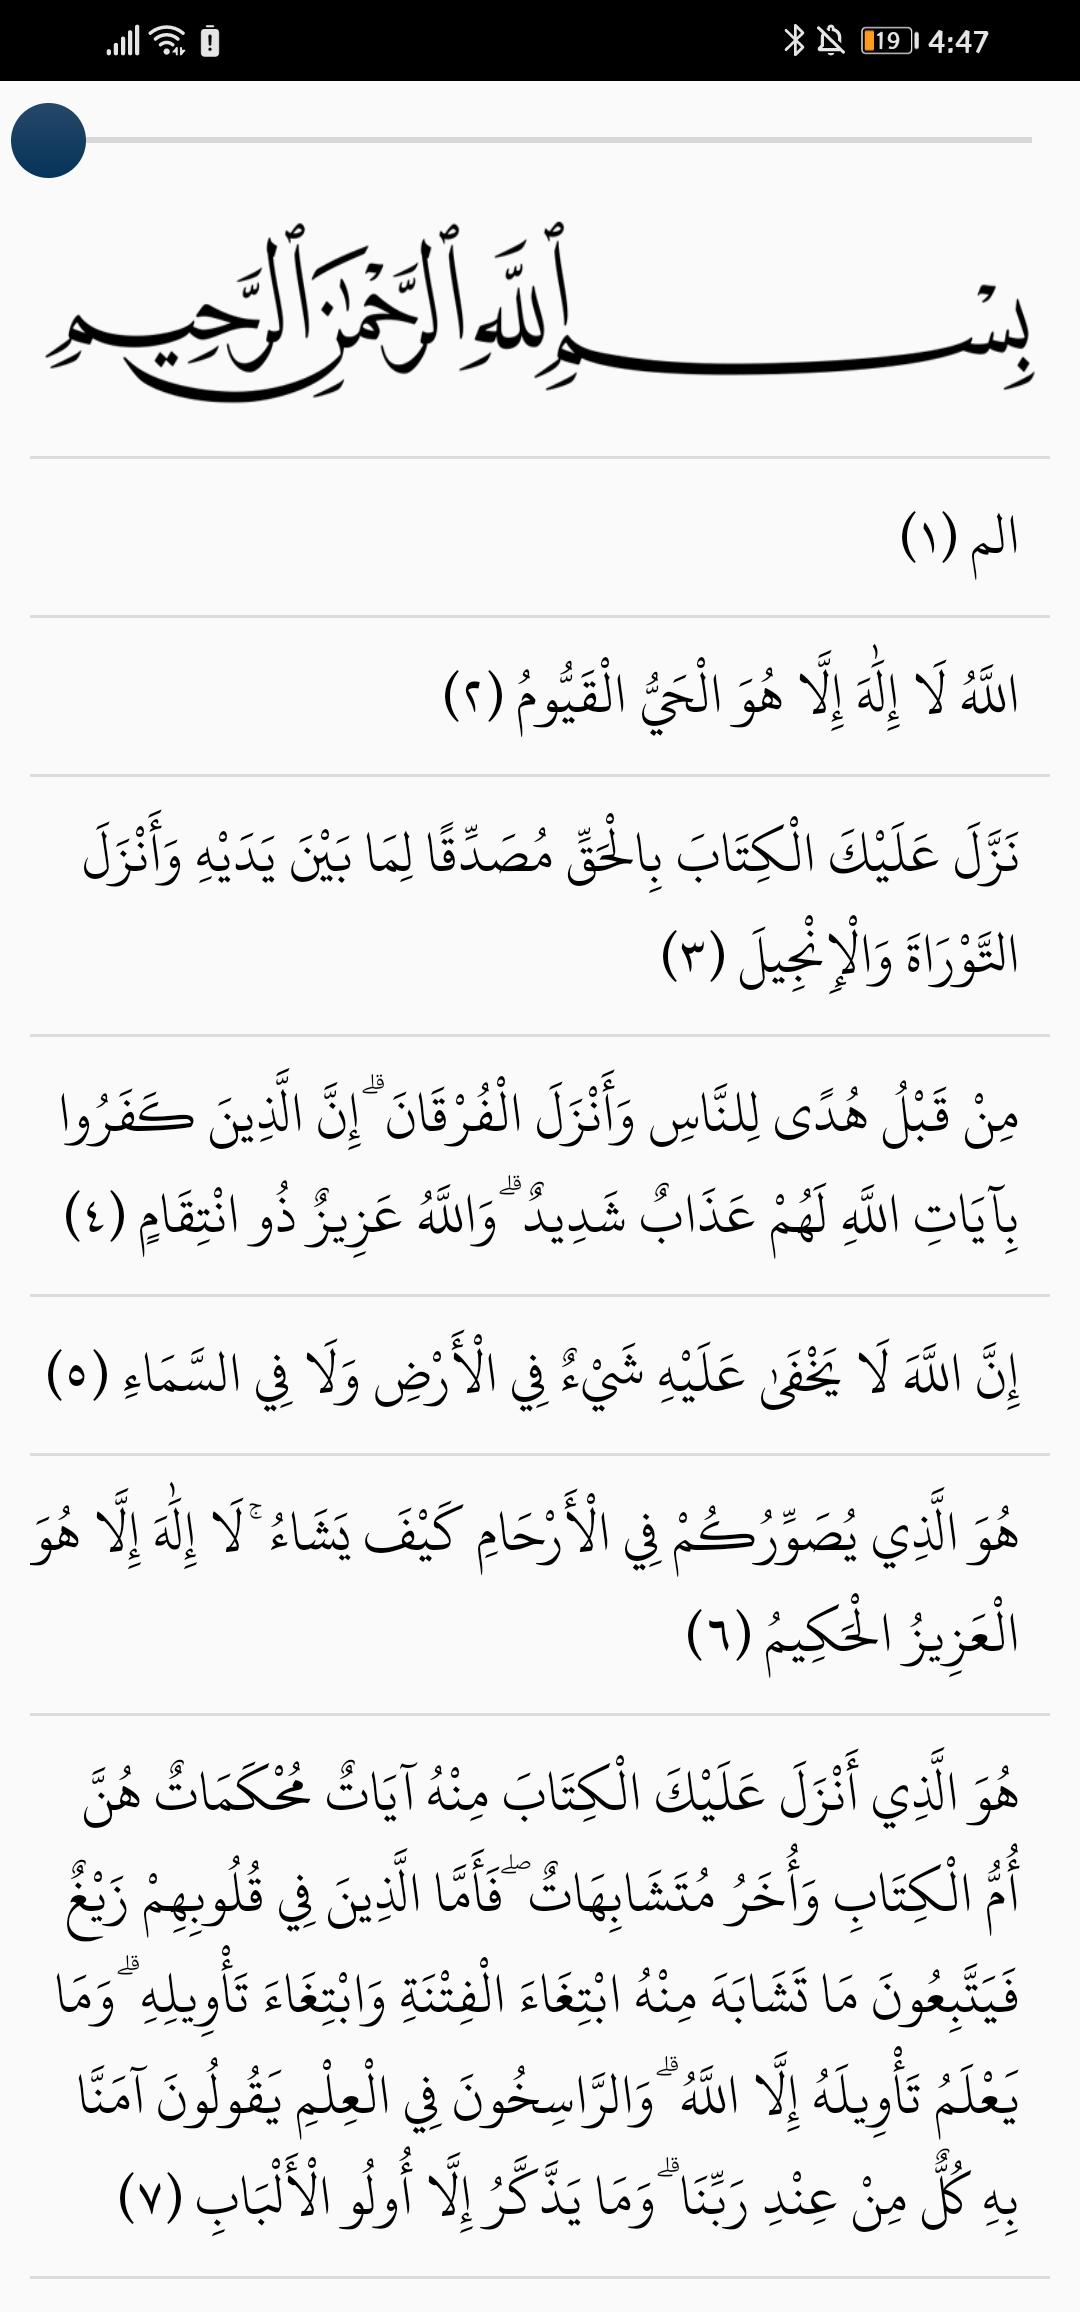 19 4:47
بِسْمِ ٱللَّهِ ٱلرَّحْمَٰنِ ٱلرَّحِيمِ
الم (١)
اللَّهُ لَا إِلَٰهَ إِلَّا هُوَ الْحَيُّ الْقَيُّومُ (٢)
نَزَّلَ عَلَيْكَ الْكِتَابَ بِالْحَقِّ مُصَدِّقًا لِمَا بَيْنَ يَدَيْهِ وَأَنْزَلَ
التَّوْرَاةَ وَالْإِنْجِيلَ (٣)
مِنْ قَبْلُ هُدًى لِلنَّاسِ وَأَنْزَلَ الْفُرْقَانَ ۗ إِنَّ الَّذِينَ كَفَرُوا
بِآيَاتِ اللَّهِ لَهُمْ عَذَابٌ شَدِيدٌ ۗ وَاللَّهُ عَزِيزٌ ذُو انْتِقَامٍ (٤)
إِنَّ اللَّهَ لَا يَخْفَىٰ عَلَيْهِ شَيْءٌ فِي الْأَرْضِ وَلَا فِي السَّمَاءِ (٥)
هُوَ الَّذِي يُصَوِّرُكُمْ فِي الْأَرْحَامِ كَيْفَ يَشَاءُ ۚ لَا إِلَٰهَ إِلَّا هُوَ
الْعَزِيزُ الْحَكِيمُ (٦)
هُوَ الَّذِي أَنْزَلَ عَلَيْكَ الْكِتَابَ مِنْهُ آيَاتٌ مُحْكَمَاتٌ هُنَّ
أُمُّ الْكِتَابِ وَأُخَرُ مُتَشَابِهَاتٌ ۖ فَأَمَّا الَّذِينَ فِي قُلُوبِهِمْ زَيْغٌ
فَيَتَّبِعُونَ مَا تَشَابَهَ مِنْهُ ابْتِغَاءَ الْفِتْنَةِ وَابْتِغَاءَ تَأْوِيلِهِ ۗ وَمَا
يَعْلَمُ تَأْوِيلَهُ إِلَّا اللَّهُ ۗ وَالرَّاسِخُونَ فِي الْعِلْمِ يَقُولُونَ آمَنَّا
بِهِ كُلٌّ مِنْ عِنْدِ رَبِّنَا ۗ وَمَا يَذَّكَّرُ إِلَّا أُولُو الْأَلْبَابِ (٧)